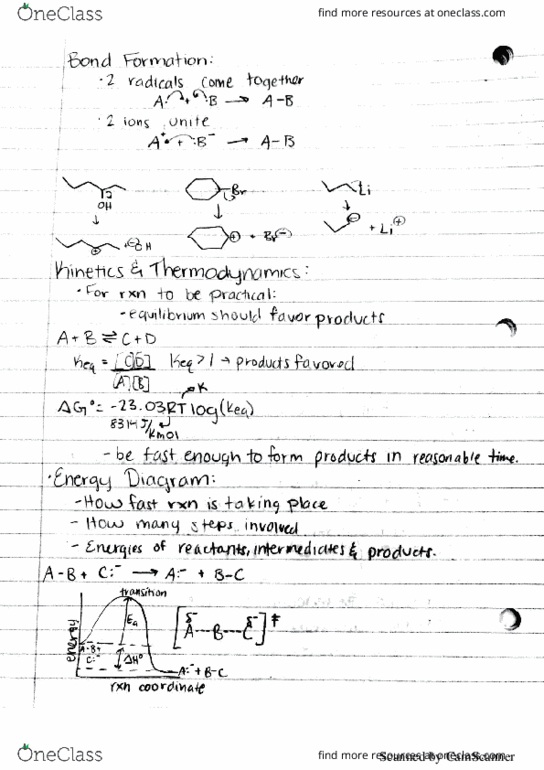 OneClass
find more resources at oneclass.com
Bond Formation:
· 2 radicals come together
A· + ·B → A-B
· 2 ions unite
A⁺ + :B⁻ → A-B
OH Br Li
↓ ↓ ↓
⊕ + ⊖OH ⊕ + Br⊖ ⊖ + Li⊕
Kinetics & Thermodynamics:
· For rxn to be practical:
- equilibrium should favor products
A + B ⇌ C + D
Keq = [C][D] Keq > 1 → products favored
[A][B]
K
ΔG° = -23.03RT log(Keq)
8314 J/kmol
- be fast enough to form products in reasonable time.
· Energy Diagram:
- How fast rxn is taking place
- How many steps involved
- Energies of reactants, intermediates & products.
A-B + C:⁻ → A:⁻ + B-C
transition
energy
Ea
[A--B--C]‡
δ⁻ δ⁻
A-B+
C:⁻
ΔH°
A:⁻ + B-C
rxn coordinate
OneClass
find more resources at oneclass.com
Scanned by CamScanner